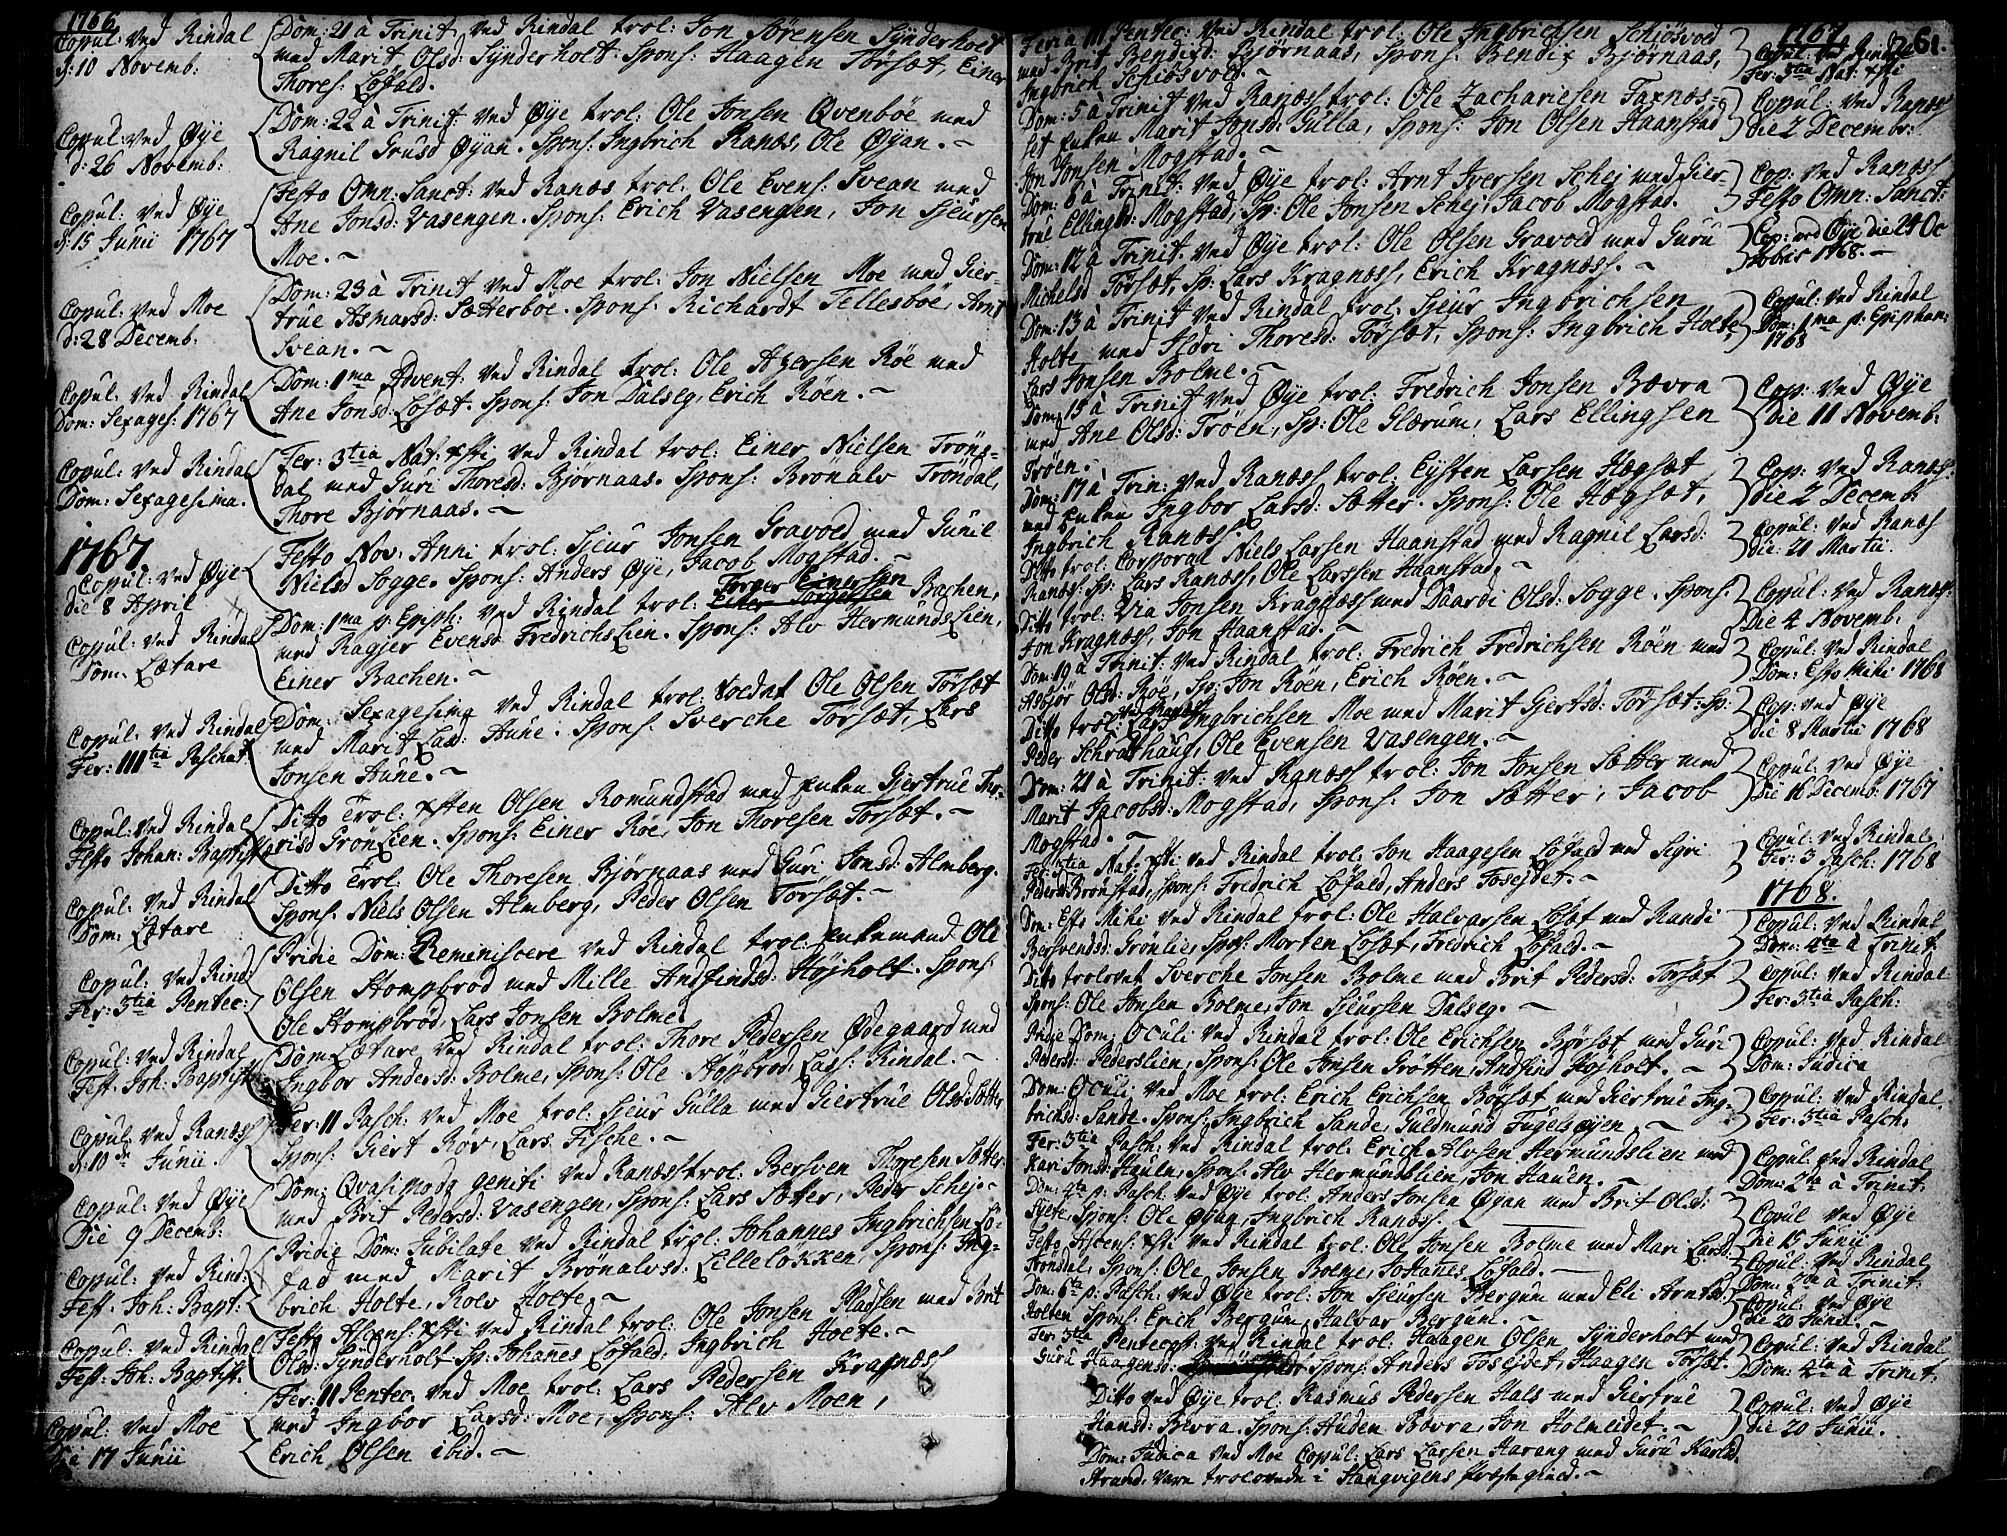 1766
Copul: Ved Rindal
d: 10 Novemb:
Dom: 21 à Trinit: ved Rindal trol: Jon Sörensen Synderholt
med Marit Olsd: Synderholt. Spons: Haagen Törsæt, Einer
Thores: Löfald.
Copul: ved Øye
d: 26 Novemb:
Dom: 22 à Trinit: ved Øye trol: Ole Jonsen Qvenböe med
Ragnil Trusd Øyan. Spons: Ingbrich Ranæs, Ole Øyan. ~
Copul: ved Øye
d: 15 Junii 1767
Festo Omn: Sanct: ved Ranæs trol: Ole Evens: Svean med
Ane Jonsd: Vasengen. Spons: Erich Vasengen, Jon Sjeursen
Moe. ~
Copul: ved Moe
d: 28 Decemb:
Dom: 23 à Trinit ved Moe trol: Jon Nielsen Moe med Gier-
true Asmarsd: Sætterböe. Spons: Richardt Tellesböe, Arnt
Svean. ~
Copul: Ved Rindal
Dom: Sexages: 1767
Dom: 1ma Advent: ved Rindal trol: Ole Azersen Röe med
Ane Jonsd: Löset. Spons: Jon Dalseg, Erich Röen. ~
Copul: ved Rindal
Dom: Sexagesima.
Fer: 3tia Nat: Xsti ved Rindal trol: Einer Nielsen Tröns-
dal med Guri Thoresd: Björnaas. Spons: Bronalv Tröndal,
Thore Björnaas. ~
1767
Copul: ved Øye
die 8 April
Festo Nov: Anni trol: Sjeur Jonsen Gravoed med Gunil
Nielsd Sogge. Spons: Anders Øye, Jacob Mogstad. ~
Copul: ved Rindal
Dom: Lætare
Torger Einersen
Dom: 1ma p: Epiph: ved Rindal trol: Einer Torgersen Bachen,
med Ragjer Evensd FredrichsLien. Spons: Alv HermundsLien,
Einer Bachen. ~
Copul: ved Rindal
Fer: IIItia Paschat
Dom: Sexagesima ved Rindal trol: Soldat Ole Olsen Törsæt
med Marit Lasd: Aune. Spons: Sverche Törsæt, Lars
Jonsen Aune. ~
Copul: ved Rindal
Festo Johan: Baptistæ
Ditto Trol: Xsten Olsen Romundstad med Enken Giertrue Tho-
risd GrönLien. Spons: Einer Röe, Jon Thoresen Torsæt. ~
Copul: ved Rindal
Dom: Lætare
Ditto Trol: Ole Thoresen Björnaas med Guri Jonsd: Almberg.
Spons: Niels Olsen Almberg, Peder Olsen Torsæt. ~
Copul: ved Rind:
Fer: 3tia Pentec:
Pridie Dom: Reminiscere ved Rindal trol: Enkemand Ole
Olsen Stompbrod med Mille Andfindsd: Höjholt. Spons:
Ole Stompbrod, Lars Jonsen Bolme.
Copul: ved Rindal
Fest: Joh: Baptist
Dom Lætare ved Rindal trol: Thore Pedersen Ødegaard med
Ingbor Andersd: Bolme, Spons: Ole Stöpbrod, Lars: Rindal. ~
Copul: ved Ranæss
d: 10de Junii.
Fer: II Pasch: ved Moe trol: Sjeur Gulla med Giertrue Olsd: Sætter
Spons: Giert Röv, Lars Fische. ~
Copul: ved Øye
Die 9 Decemb:
Dom: Qvasimodo geniti ved Ranæss trol: Bersven Thoresen Sætter
med Brit Pedersd: Vasengen, Spons: Lars Sætter, Peder Schej. ~
Copul: ved Rind:
Fest: Joh: Bapt:
Pridie Dom: Jubilate ved Rindal trol: Johannes Ingbrichsen Lö-
dad med Marit Bronalvsd: Lillelökken, Spons: Ing-
brich Holte, Rolv Holte. ~
Copul: ved Rindal
Fest: Joh: Baptist:
Festo Ascens: Xsti ved Rindal trol: Ole Jonsen Pladsen med Brit
Olsd: Synderholt Sp: Johanes Löfald, Ingbrich Holte. ~
Copul: ved Moe
Die 17 Junii
Fer: II Pentec: ved Moe trol: Lars Pedersen Kragnæss
med Ingbor Larsd: Moe, Spons: Alv Moen,
Erich Olsen ibid. ~
1767
261.
Feria III Pentec: ved Rindal trol: Ole Ingbrichsen Schiösvod
med Brit Bendixd: Björnaas, Spons: Bendix Björnaas,
Ingbrich Schiösvold. ~
Copul: ved Rindal
Fer: 3tia Nat: Xsti
Dom: 5 à Trinit: ved Ranæss trol: Ole Zachariesen Faxnes-
set Enken Marit Jonsd: Gulla, Spons: Jon Olsen Haanstad
Jon Jonsen Mogstad. ~
Copul: ved Ranæss
die 2 Decembr:
Dom: 6 à Trinit: ved Øye trol: Arnt Iversen Schej med Gier-
true Ellingsd: Mogstad, Sp: Ole Jonsen Schej, Jacob Mogstad.
Cop: ved Ranæss
Festo Omn: Sanct:
Dom: 12 à Trinit: ved Øye trol: Ole Olsen Gravoed med Guru
Michelsd Törsæt, Sp: Lars Kragnæss, Erich Kragnæss. ~
Cop: ved Øye die 24 Oc
tobris 1768. ~
Dom: 13 à Trinit ved Rindal trol: Sjeur Ingbrichsen
Holte med Ildri Thoresd: Törsæt, Spons: Ingbrich Holte,
Lars Jonsen Bolme. ~
Copul: ved Rindal
Dom: 1ma p: Epiphan:
1768
Dom: 15 à Trinit ved Øye trol: Fredrich Jonsen Bævra
med Ane Olsd: Tröen, Sp: Ole Glærum, Lars Ellingsen
Tröen.
Cop: ved Øye
die 11 Novemb:
Dom: 17 à Trin: ved Ranæss trol: Eysten Larsen Hægsæt
med Enken Ingbor Larsd: Sætter. Spons: Ole Hægsæt,
Ingbrich Ranæs.
Cop: ved Ranæs:
die 2 Decemb:
Ditto trol: Corporal Niels Larsen Haanstad med Ragnil Larsd:
Ranæs: Sp: Lars Ranæss, Ole Larssen Haanstad. ~
Copul: ved Ranæs
die 21 Martii.
Ditto trol: Ura Jonsen Kragnæss med Daardi Olsd: Sogge. Spons:
Jon Kragnæss, Jon Haanstad. ~
Copul: ved Ranæs:
Die 4 Novemb:
Dom: 19 à Trinit: ved Rindal trol: Fredrich Fredrichsen Röen med
Asbjör Olsd: Röe, Sp: Jon Roen, Erich Röen. ~
Copul: ved Rindal
Dom: Esto Mihi 1768
ved Ranæs
Ditto trol: Lars Ingbrichsen Moe med Marit Gjertsd: Törsæt: Sp:
Peder Schralthaug, Ole Evensen Vasengen. ~
Cop: ved Øye
Die 8 Martii 1768
Dom: 21 à Trinit: ved Ranæss trol: Jon Jonsen Sætter med
Marit Jacobsd: Mogstad, Spons: Jon Sætter, Jacob
Mogstad. ~
Copul: ved Øye
Die 16 Decemb: 1767
Fer: 3tia Nat. Xsti ved Rindal trol: Jon Haagesen Löfald med Sigri
Pedersd: Bronstad, Spons: Fredrich Löfald, Anders Fosejdet. ~
Copul: ved Rindal
Fer: 3 Pasch: 1768
1768.
Dom: Esto Mihi ved Rindal trol: Ole Halvarsen Löset med Randi
Bersvendsd: Grönlie, Spons: Morten Löset, Fredrich Löfald. ~
Copul: ved Rindal
Dom: 4ta à Trinit:
Ditto trolovet Sverche Jonsen Bolme med Brit Pedersd: Torsæt
Spons: Ole Jonsen Bolme, Jon Sjeursen Dalseg. ~
Copul: ved Rindal
Fer: 3tia Pasch:
Pridie Dom: Oculi ved Rindal trol: Ole Erichsen Börsæt med Guri
Pedersd: Pederslien, Spons: Ole Jonsen Grötten, Andfind Höjholt. ~
Copul: ved Rindal
Dom: Judica
Dom: Oculi, ved Moe trol: Erich Erichsen Börsæt med Giertrue Ing-
brichsd: Sande. Spons: Ingbrich Sande, Guldmund Fugelsøyen. ~
Copul: ved Rindal
Fer: 3tia Pasch:
Fer: 3tia Pasch: ved Rindal trol: Erich Alvsen Hermundslien med
Kari Jonsd: Hauen, Spons: Alv Hermundslien, Jon Hauen. ~
Copul: ved Rindal
Dom: 2da à Trinit:
Dom: 4ta p: Pasch: ved Øye trol: Anders Jonsen Øyan med Brit Olsd:
Sylte, Spons: Ole Øyan, Ingbrich Ranæss.
Copul ved Øye
die 15 Junii
Festo Ascens: Xsti ved Rindal trol: Ole Jonsen Bolme med Mari Larsd:
Trönsdal, Spons: Ole Jonsen Bolme, Johanes Löfald. ~
Copul: ved Rindal
Dom: 2da à Trinit:
Dom: 6ta p: Pasch: ved Øye trol: Jon Sjeursen Bergum med Eli Arntsd:
Holten Spons: Erich Bergum, Halvar Bergum. ~
Copul: ved Øye
die 20 Junii. ~
Fer: 3tia Pentecost: ved Rindal trol: Haagen Olsen Synderholt med
Guru Haagensd: Spons: Anders Fosejdet, Haagen Törset. ~
Copul: ved Rindal
Dom: 4ta à Trinit:
Ditto ved Øye trol: Rasmus Pedersen Hals med Giertrue
Hansd: Bævra. Spons: Auden Bævra, Jon Holmeidet. ~
Copul: ved Øye
die 20 Junii.
Dom: Judica ved Moe Copul: Lars Larsen Harang med Guru Karlsd.
Strand, vare trolovede i Stangvigens Præstegield. ~